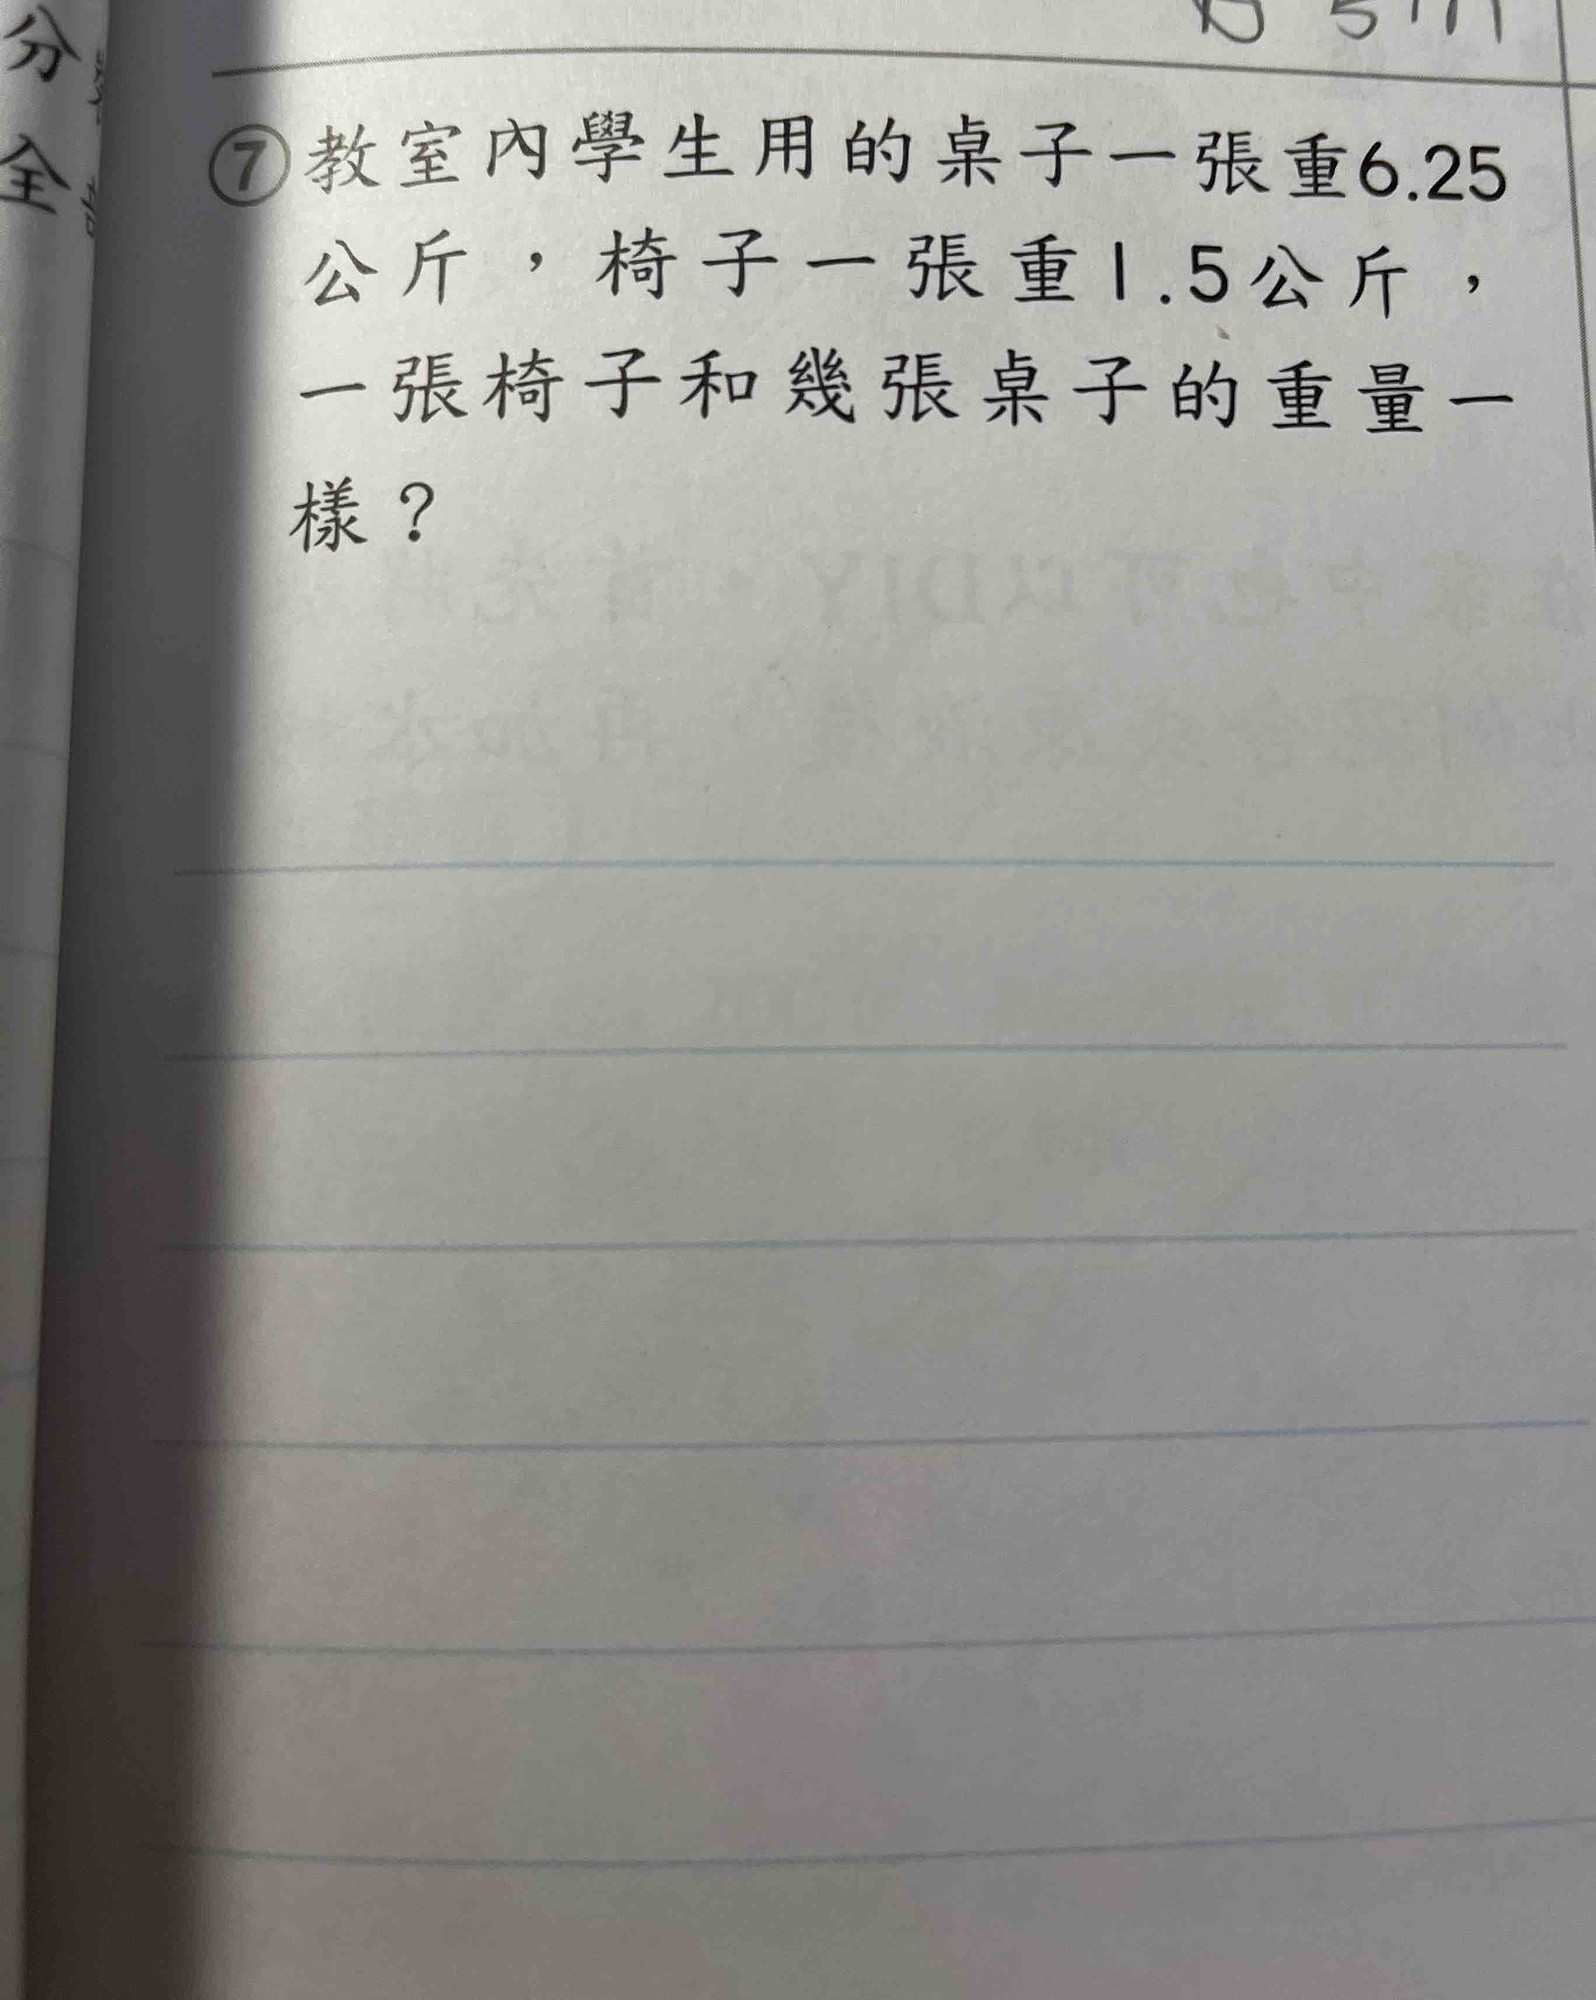 分
全
⑦教室內學生用的桌子一張重6.25
公斤，椅子一張重1.5公斤，
一張椅子和幾張桌子的重量一
樣？